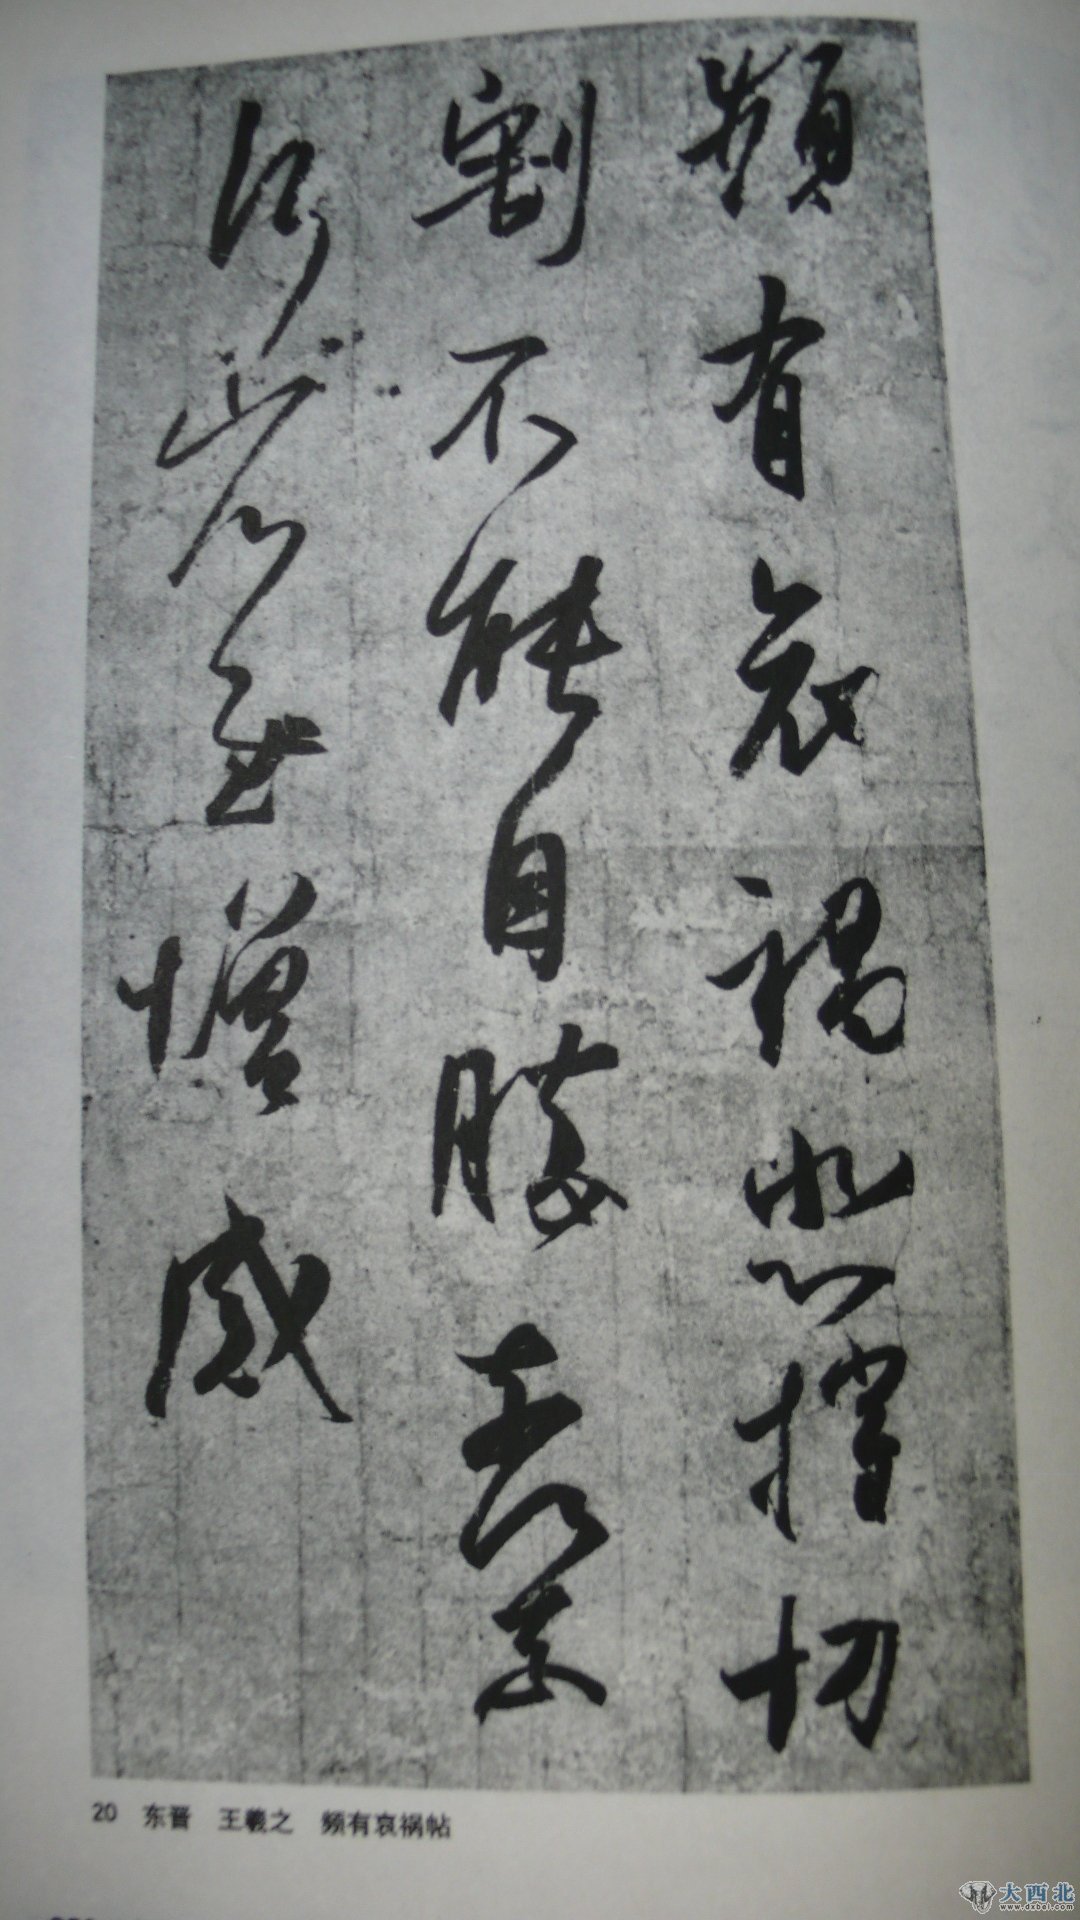 頻有哀禍悲摧切
割不能自勝奈何奈
何省慰增感
20 东晋 王羲之 频有哀祸帖
大西北
www.dxbei.com